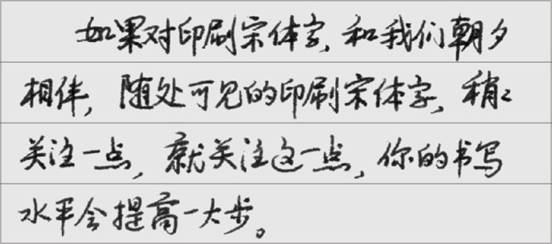 如果对印刷宋体字，和我们朝夕
相伴，随处可见的印刷宋体字，稍稍
关注一点，就关注这一点，你的书写
水平会提高一大步。